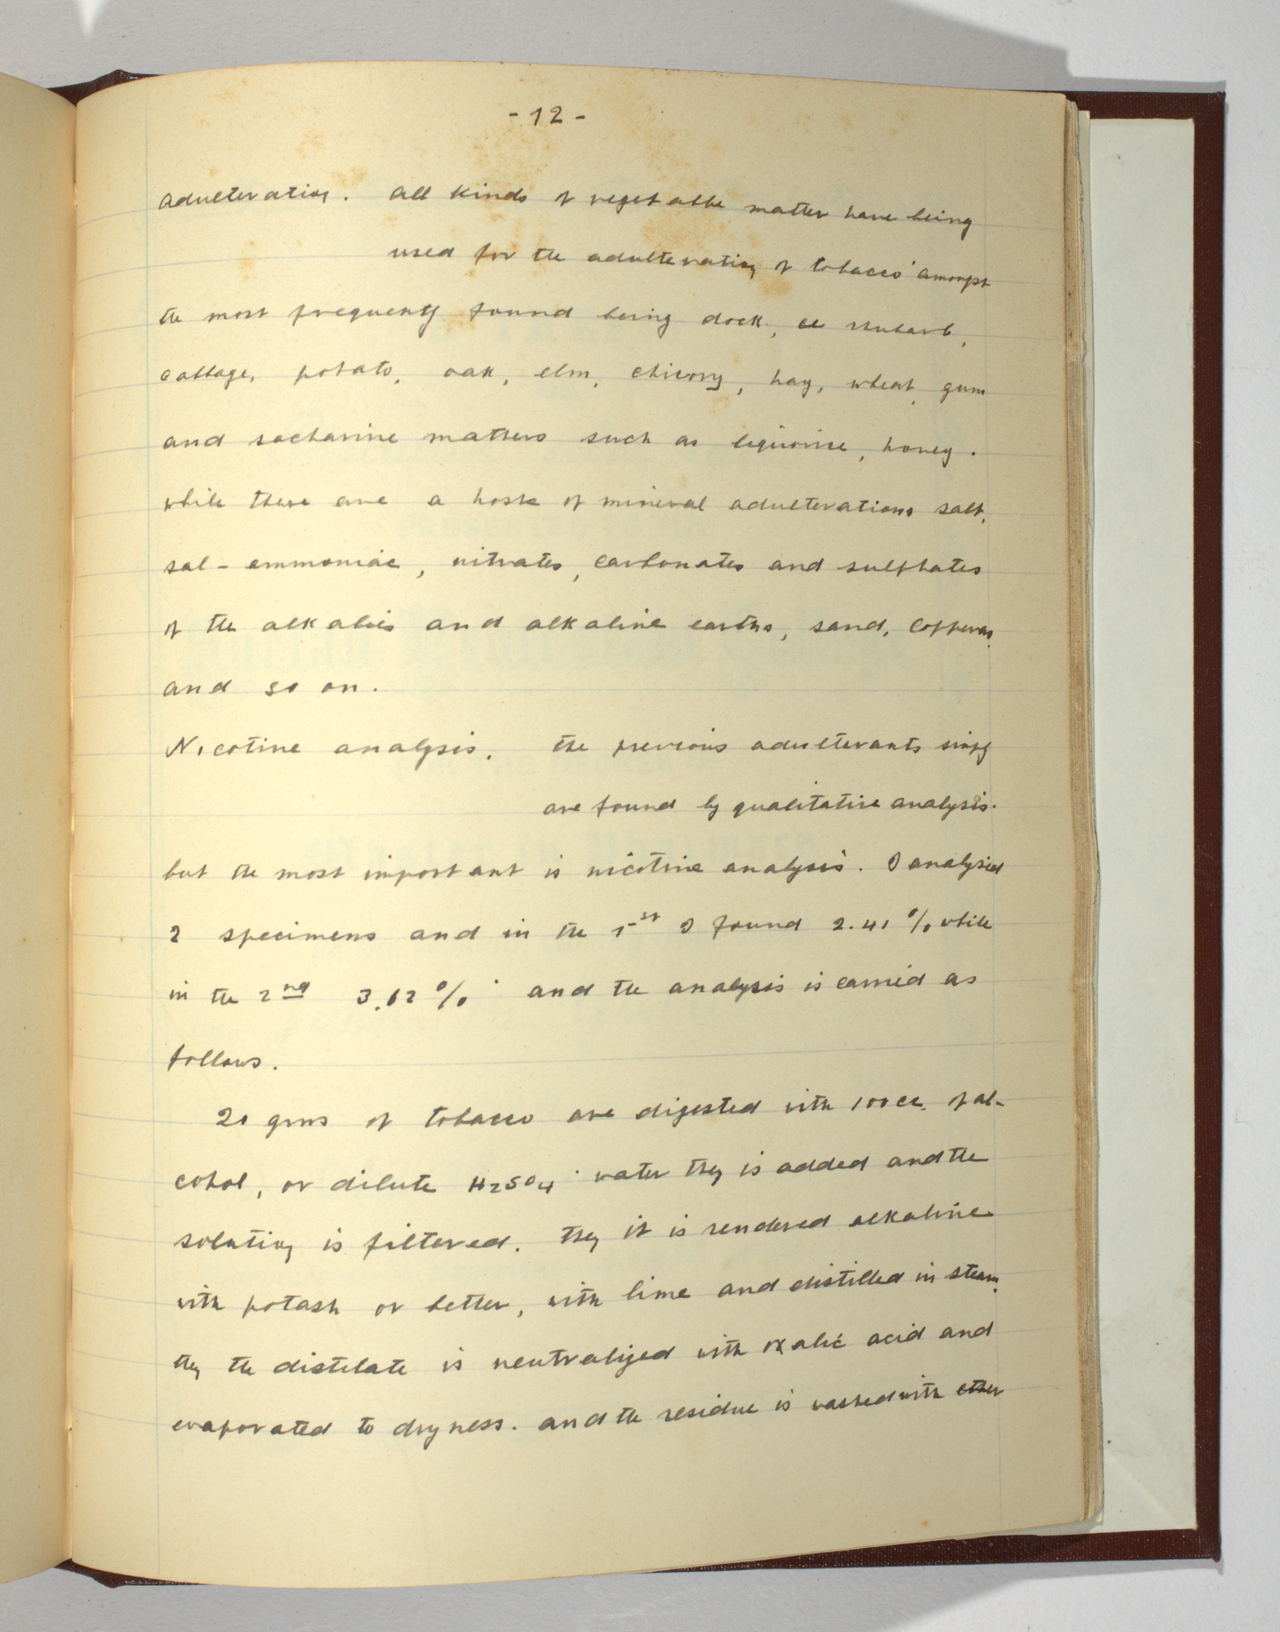 - 12 -
Adulteration. All kinds of vegetable matter have being
used for the adulteration of tobacco amongst
the most frequently found being dock, rhubarb,
cabbage, potato, oak, elm, chicory, hay, wheat, gum
and saccharine matters such as liquorice, honey.
while there are a hoste of mineral adulterations salt,
sal-ammoniac, nitrates, carbonates and sulphates
of the alkalies and alkaline earths, sand, copperas,
and so on.
Nicotine analysis. the previous adulterants simply
are found by qualitative analysis.
but the most important is nicotine analysis. I analysed
2 specimens and in the 1st I found 2.41 % while
in the 2nd 3.62 % and the analysis is carried as
follows.
20 gms of tobacco are digested with 100 cc. of al-
cohol, or dilute H2SO4 water then is added and the
solution is filtered. then it is rendered alkaline
with potash or better, with lime and distilled in steam.
then the distilate is neutralized with oxalic acid and
evaporated to dryness. and the residue is washed with ether